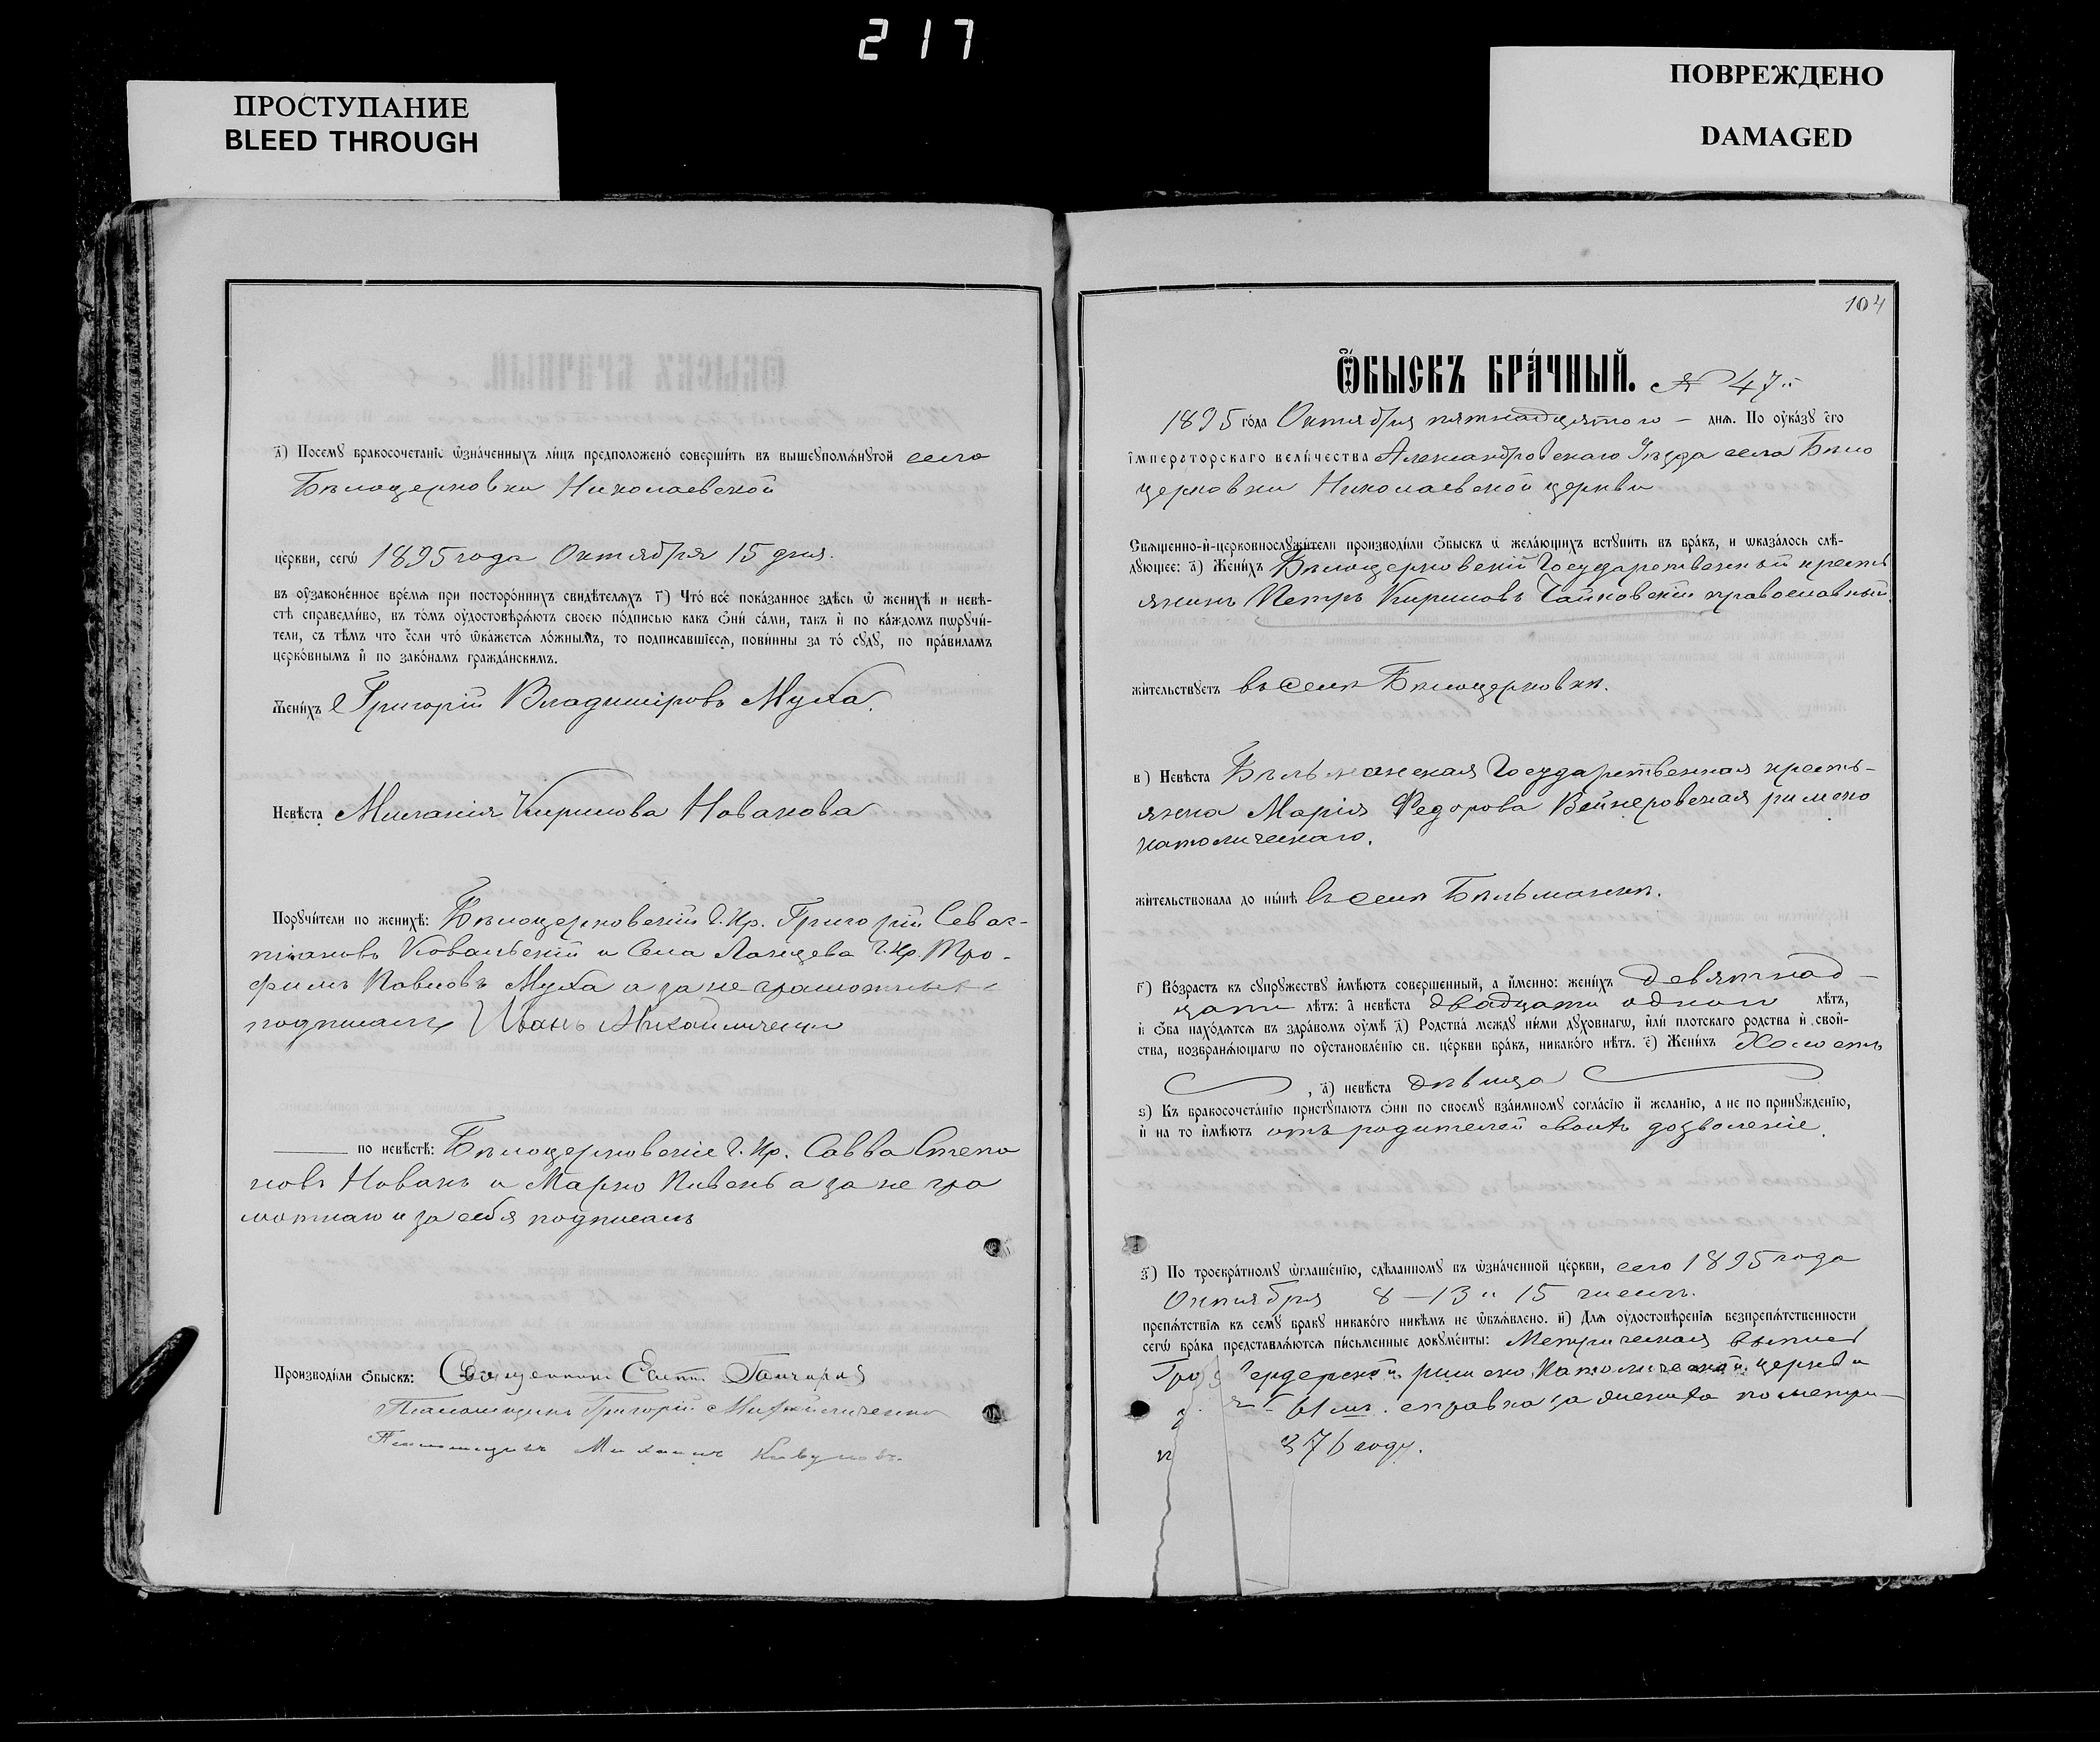 217
ПРОСТУПАНИЕ
BLEED THROUGH
ПОВРЕЖДЕНО
DAMAGED
з) Посемꙋ бракосочетаніе ѡзначенныхъ лицъ предположено совершить въ вышеꙋпомянꙋтой села
Бѣлоцерковки Николаевской
церкви, сегѡ 1895 года Октября 15 дня.
въ оузаконенное время при постороннихъ свидѣтеляхъ г) Что все показанное здѣсь ѡ женихѣ и невѣ-
стѣ справедливо, въ томъ оудостовѣряютъ своею подписью какъ ѻни сами, такъ и по каждомъ пѡрꙋчи-
тели, съ тѣмъ что если что ѡкажется ложнымъ, то подписавшіеся, повинны за то сꙋдꙋ, по правиламъ
церковнымъ и по законамъ гражданскимъ.
Женихъ Григорій Владиміровъ Муха.
Невѣста Миланія Кирилова Новакова
Порꙋчители по женихѣ: Бѣлоцерковскій г. кр. Григорій Севас-
тіановъ Ковальскій и Села г. кр. Тро-
фимъ Павловъ Муха а за не грамотных
подписалъ Иванъ Михайличенко
по невѣстѣ: Бѣлоцерковскіе г. кр. Савва Степа
новъ Новакъ и Марко Пивень а за не гра
мотнаго и за себя подписалъ
Производили ѻбыскъ: Священникъ Гончаровъ
Псаломщикъ Григорій Михайличенко
Псаломщикъ Михаилъ
104
Ѻбыскъ брачный. № 47й
1895 года Октября пятнадцатого — дня. По оуказꙋ Его
Императорскаго величества Александровскаго Уѣзда села Бѣло
церковки Николаевской церкви
Священно-и-церковнослꙋжители производили ѻбыскъ ѡ желающихъ встꙋпить въ бракъ, и ѡказалось слѣ-
дꙋющее: а) Женихъ Бѣлоцерковскій Государственный кресть
янинъ Петръ Кириловъ Чайковскій православный
жительствꙋетъ въ Селѣ Бѣлоцерковки.
в) Невѣста Бѣльманская Государственная кресть-
янка Марія Федорова Вейнеровская римско
католическаго.
жительствовала до нынѣ въ селѣ Бѣльманки.
г) Возрастъ къ сꙋпрꙋжествꙋ имѣютъ совершенный, а именно: женихъ девятнад-
цати лѣтъ: а невѣста двадцати одного лѣтъ,
и ѻба находятся въ здравомъ оумѣ д) Родства междꙋ ними дꙋховнагѡ, или плотскаго родства и свой-
ства, возбраняющагѡ по оустановленію св. церкви бракъ, никакого нѣтъ. е) Женихъ Холостъ
, а) невѣста дѣвица
ѕ) Къ бракосочетанію пристꙋпаютъ ѻни по своемꙋ взаимномꙋ согласію и желанію, а не по принꙋжденію,
и на то имѣютъ отъ родителей своихъ дозволеніе.
з) По троекратномꙋ ѡглашенію, сдѣланномꙋ въ ѡзначенной церкви, сего 1895 года
Октября 8 – 13 и 15 числъ.
препятствія къ семꙋ бракꙋ никакого никѣмъ не ѡбъявлено. и) Для оудостовѣренія безпрепятственности
сегѡ брака представляются письменные докꙋменты: Метрическая выпись
римско Католической церкви
справка за жениха по метри-
376 году.